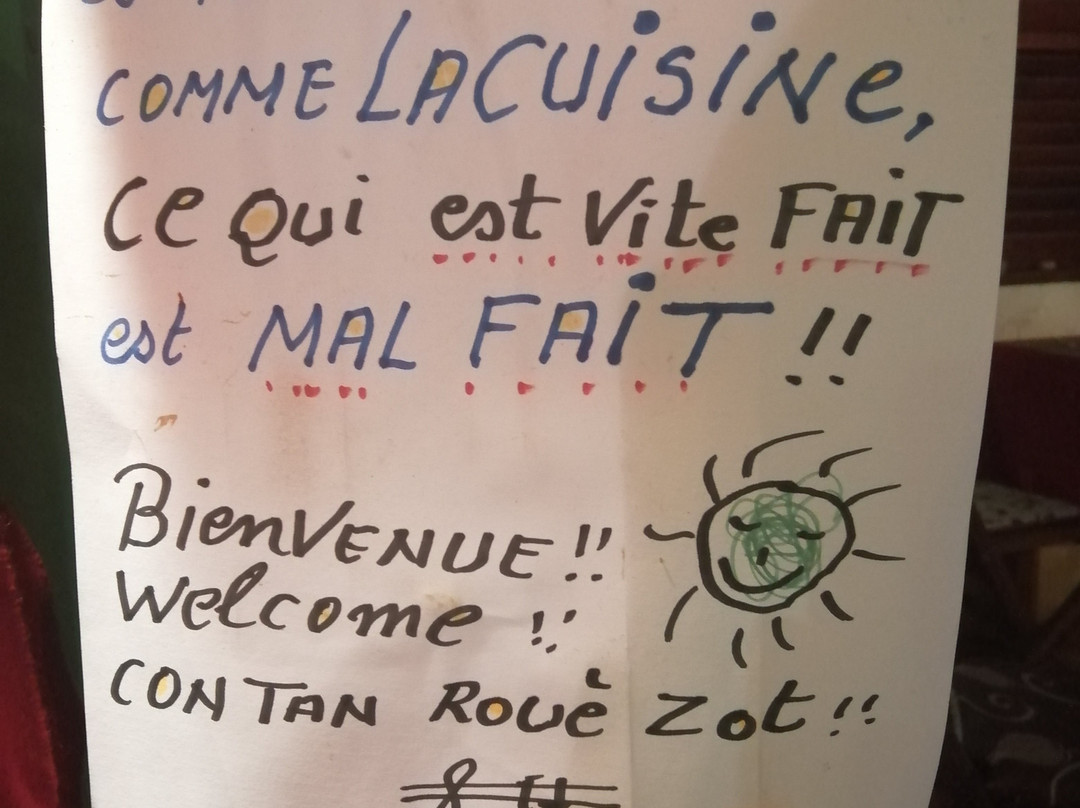 COMME LACUISINE,
CE QUI est Vite FAIT
est MAL FAIT !!
BIENVENUE !!
Welcome !!
CONTAN ROUÈ ZOT !!